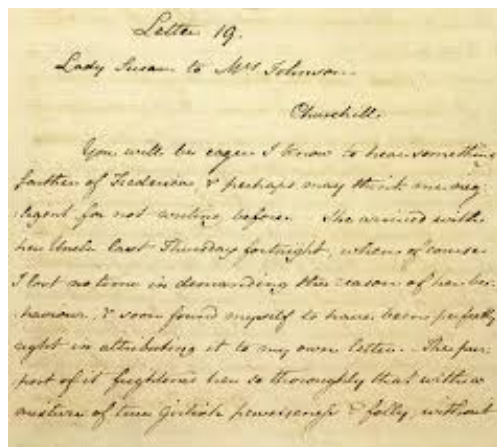 Letter 19.
Lady Susan to Mrs Johnson
Churchill.
You will be eager I know to hear something
farther of Frederica & perhaps may think me neg-
ligent for not writing before. She arrived with
her Uncle last Thursday fortnight, when of course
I lost no time in demanding the reason of her be-
haviour, & soon found myself to have been perfectly
right in attributing it to my own letter. The pur-
port of it frightened her so thoroughly that with a
mixture of true girlish perverseness & folly, without